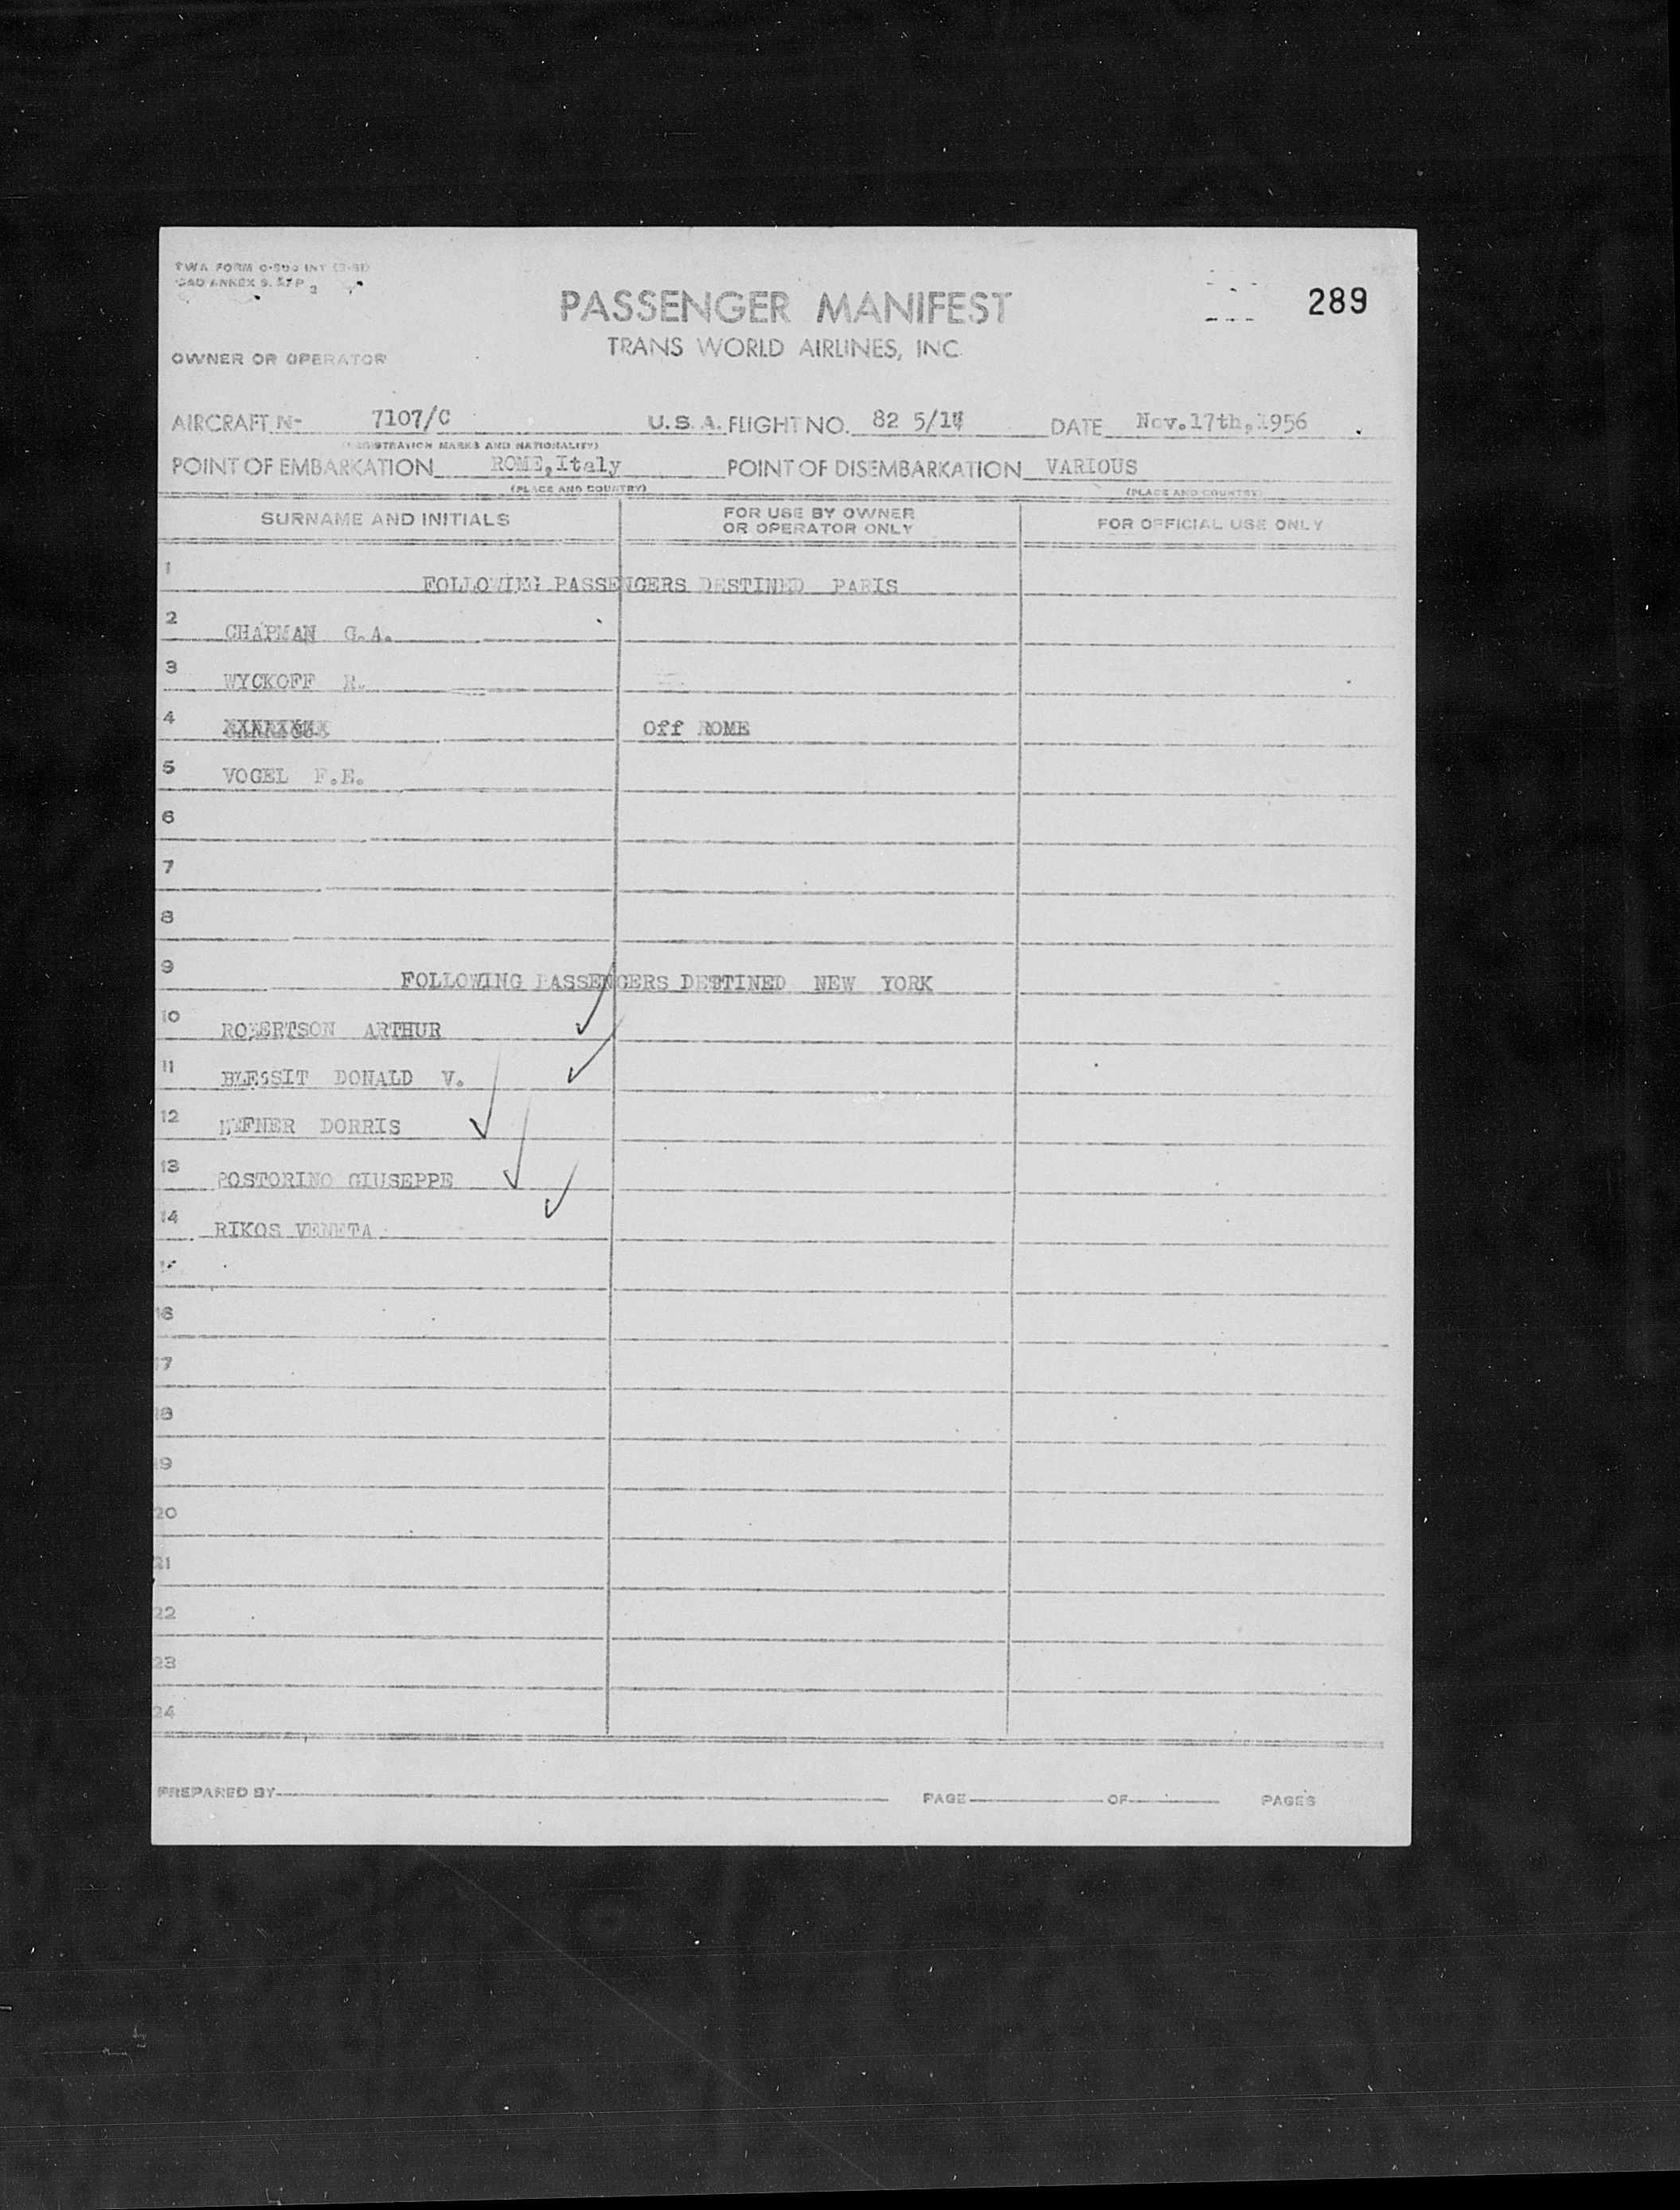 TWA FORM
289
PASSENGER MANIFEST
TRANS WORLD AIRLINES, INC.
OWNER OR OPERATOR
AIRCRAFT N- 7107/C U.S.A. FLIGHT NO. 82 5/14 DATE Nov.17th,1956
(REGISTRATION MARKS AND NATIONALITY)
POINT OF EMBARKATION ROME,Italy POINT OF DISEMBARKATION VARIOUS
(PLACE AND COUNTRY) (PLACE AND COUNTRY)
SURNAME AND INITIALS FOR USE BY OWNER OR OPERATOR ONLY FOR OFFICIAL USE ONLY
1 FOLLOWING PASSENGERS DESTINED PARIS
2 CHAPMAN G.A.
3 WYCKOFF R.
4 Off ROME
5 VOGEL F.E.
6
7
8
9 FOLLOWING PASSENGERS DESTINED NEW YORK
10 ROBERTSON ARTHUR
11 BLESSIT DONALD V.
12 DORRIS
13 POSTORINO GIUSEPPE
14 RIKOS VENETA
16
17
18
19
20
21
22
23
24
PREPARED BY PAGE OF PAGES